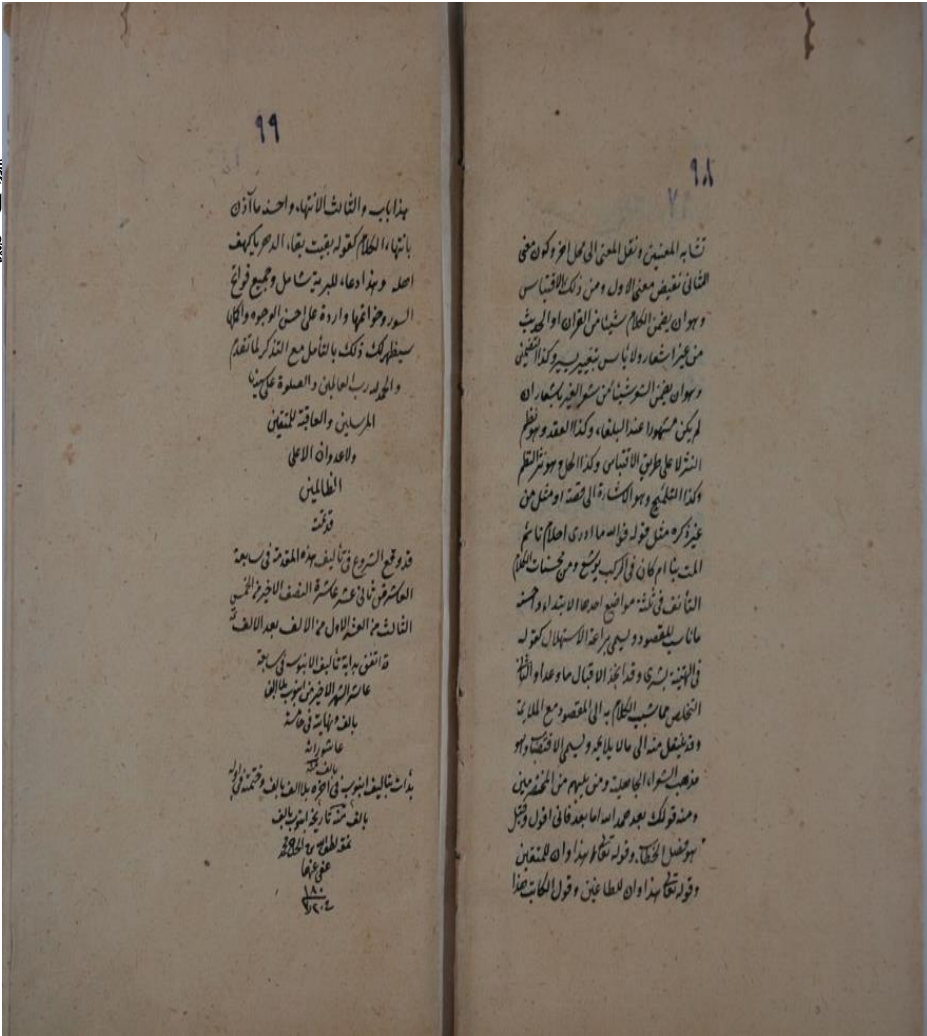 ٩٨
تشابه المعنيين ونقل المعنى الى محل اخر وكون معنى
الثانى نقيض معنى الاول ومن ذلك الاقتباس
وهو ان يضمن الكلام شيئا من القران او الحديث
من غير اشعار ولا باس بتغيير يسير وكذا التضمين
وهو ان يضمن الشعر شيئا من شعر الغير باشعار ان
لم يكن مشهورا عند البلغاء وكذا العقد وهو نظم
النثر لا على طريق الاقتباس وكذا الحل وهو نثر النظم
وكذا التلميح وهو الاشارة الى قصة او مثل من
غير ذكره مثل قوله فوالله ما ادرى احلام نائم
المت بنا ام كان فى الركب يوشع ومن محسنات الكلام
التأنف فى ثلثة مواضع احدها الابتداء واحسنه
ما ناسب المقصود ويسمى براعة الاستهلال كقوله
فى التهنية بشرى وقد انجز الاقبال ما وعدا والثانى
التخلص مما شبب الكلام به الى المقصود مع الملايمة
وقد ينتقل منه الى ما لا يلايمه ويسمى الاقتضاب وهو
مذهب الشعراء الجاهلية ومن يليهم من المخضرمين
ومنه قولك بعد حمد الله اما بعد فانى اقول وقيل
هو فصل الخطاب وقوله تعالى هذا وان للمتقين
وقوله تعالى هذا وان للطاغين وقول الكاتب هذا
٩٩
هذا باب والثالث الانتهاء واحسنه ما آذن
بانتهاء الكلام كقوله بقيت بقاء الدهر يا كهف
اهله وهذا دعاء للبرية شامل وجميع فواتح
السور وخواتمها واردة على احسن الوجوه واكملها
سيظهر لك ذلك بالتأمل مع التذكر لما تقدم
والحمد لله رب العالمين والصلوة على سيدنا
المرسلين والعاقبة للمتقين
ولا عدوان الا على
الظالمين
قد وقع الشروع فى تأليف هذه المقدمة فى سابعة
العاشر من ثانى عشر عاشرة النصف الاخير من الخمس
الثالث من العشر الاول من الالف بعد الالف
قد اتفق بداية تأليف الانبوب فى سابعة
عاشر الشهر الاخير من
بالف ونهايته فى خامسة
عاشوراء
بالف
بدأت بتأليف انبوب فى اخره بلا الف بالف وختمته فى اوله
بالف منه تاريخ انبوب بالف
عفى عنهما
١٨٠
١٢٠٤